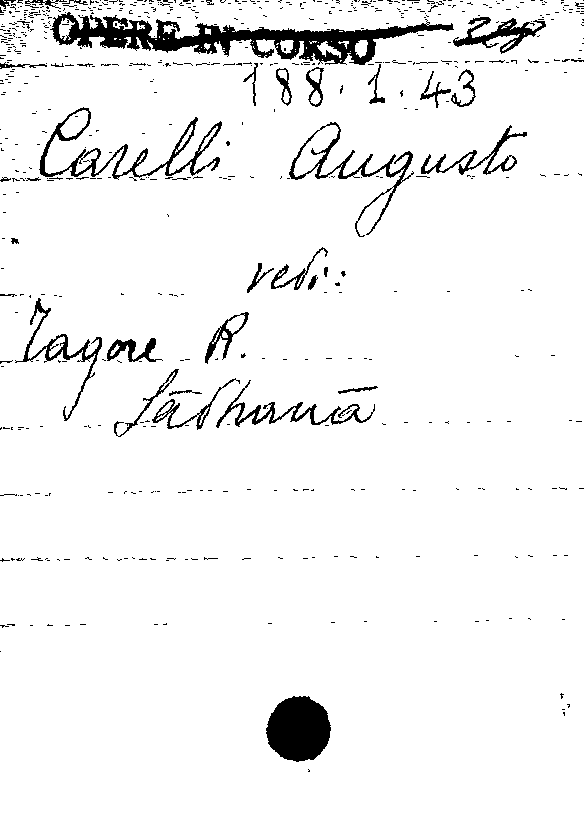 OPERE IN CORSO
188.1.43
Carelli Augusto
vedi:
Tagore R.
Sādhanā